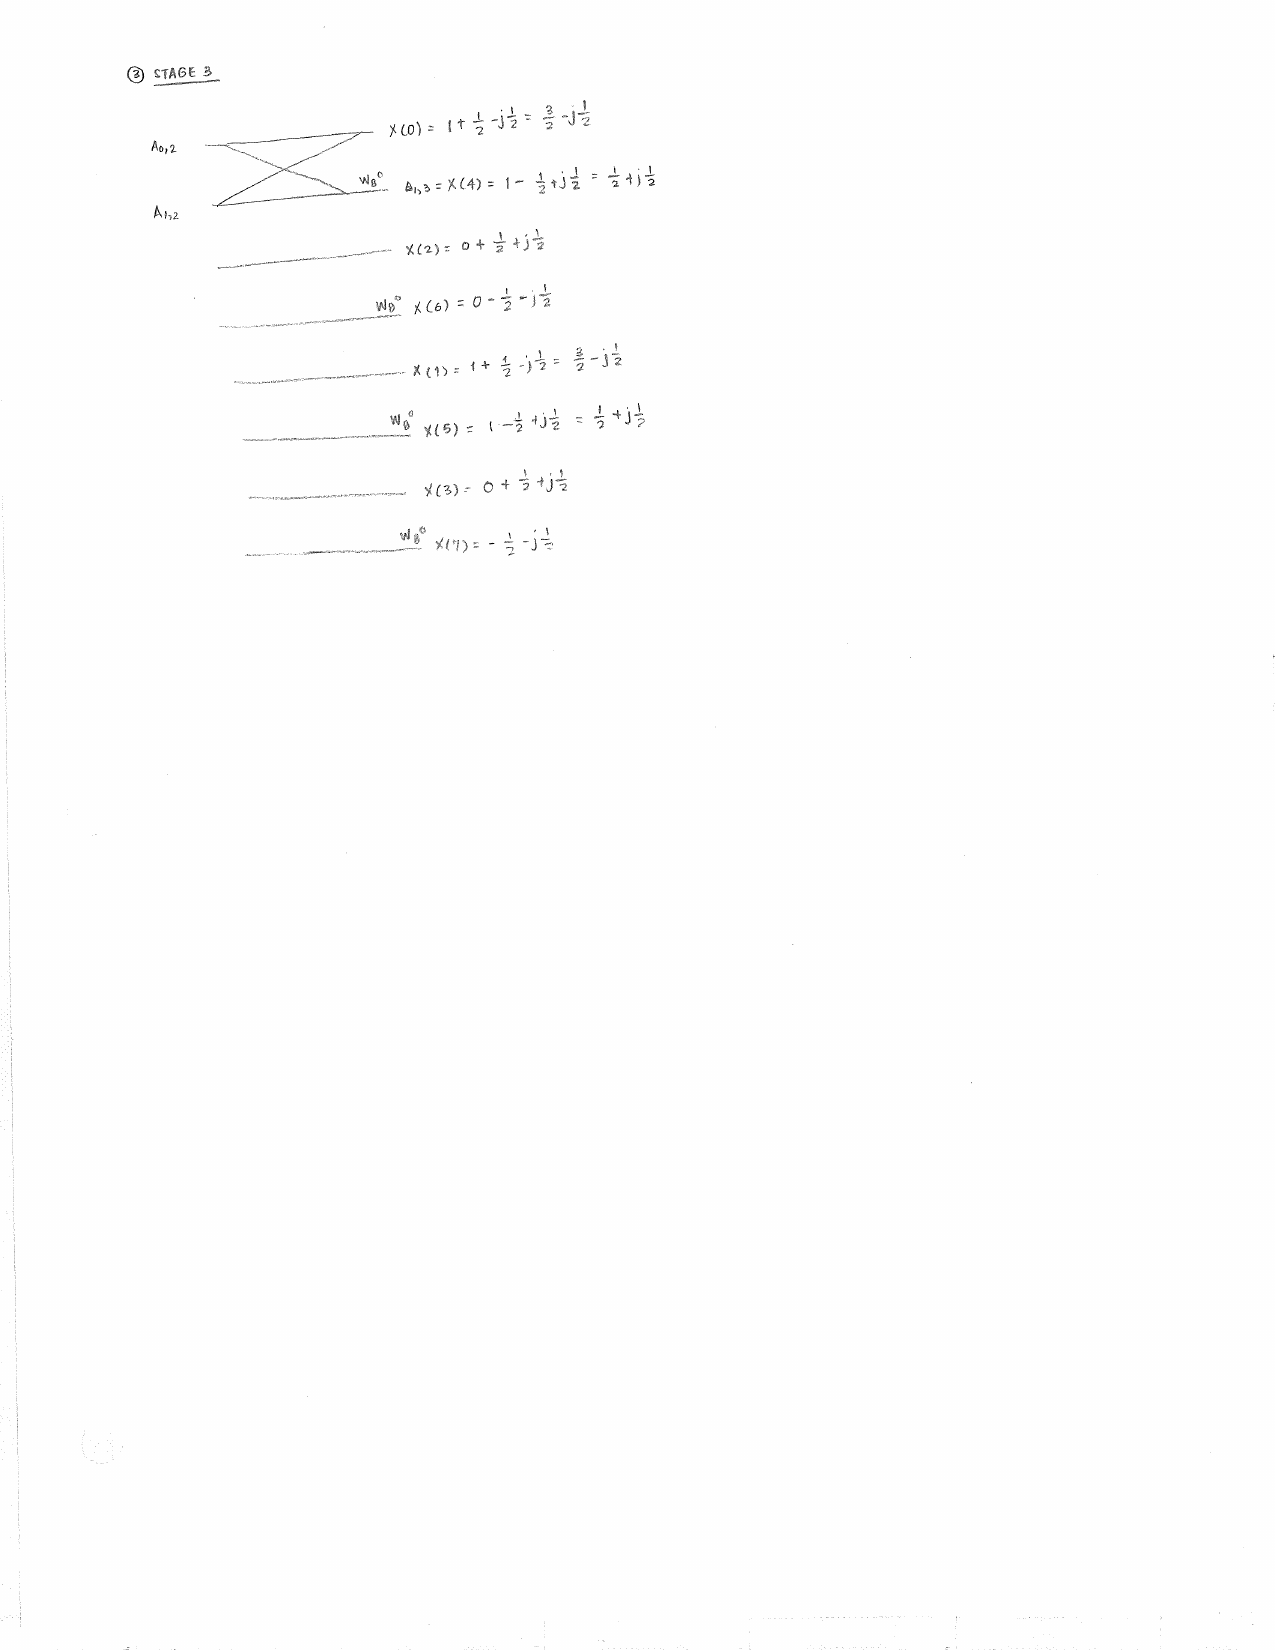 ③ STAGE 3
X(0) = 1 + 1/2 - j 1/2 = 3/2 - j 1/2
A0,2
W8^0 A1,3 = X(4) = 1 - 1/2 + j 1/2 = 1/2 + j 1/2
A1,2
X(2) = 0 + 1/2 + j 1/2
W8^0 X(6) = 0 - 1/2 - j 1/2
X(1) = 1 + 1/2 - j 1/2 = 3/2 - j 1/2
W8^0 X(5) = 1 - 1/2 + j 1/2 = 1/2 + j 1/2
X(3) = 0 + 1/2 + j 1/2
W8^0 X(7) = - 1/2 - j 1/2